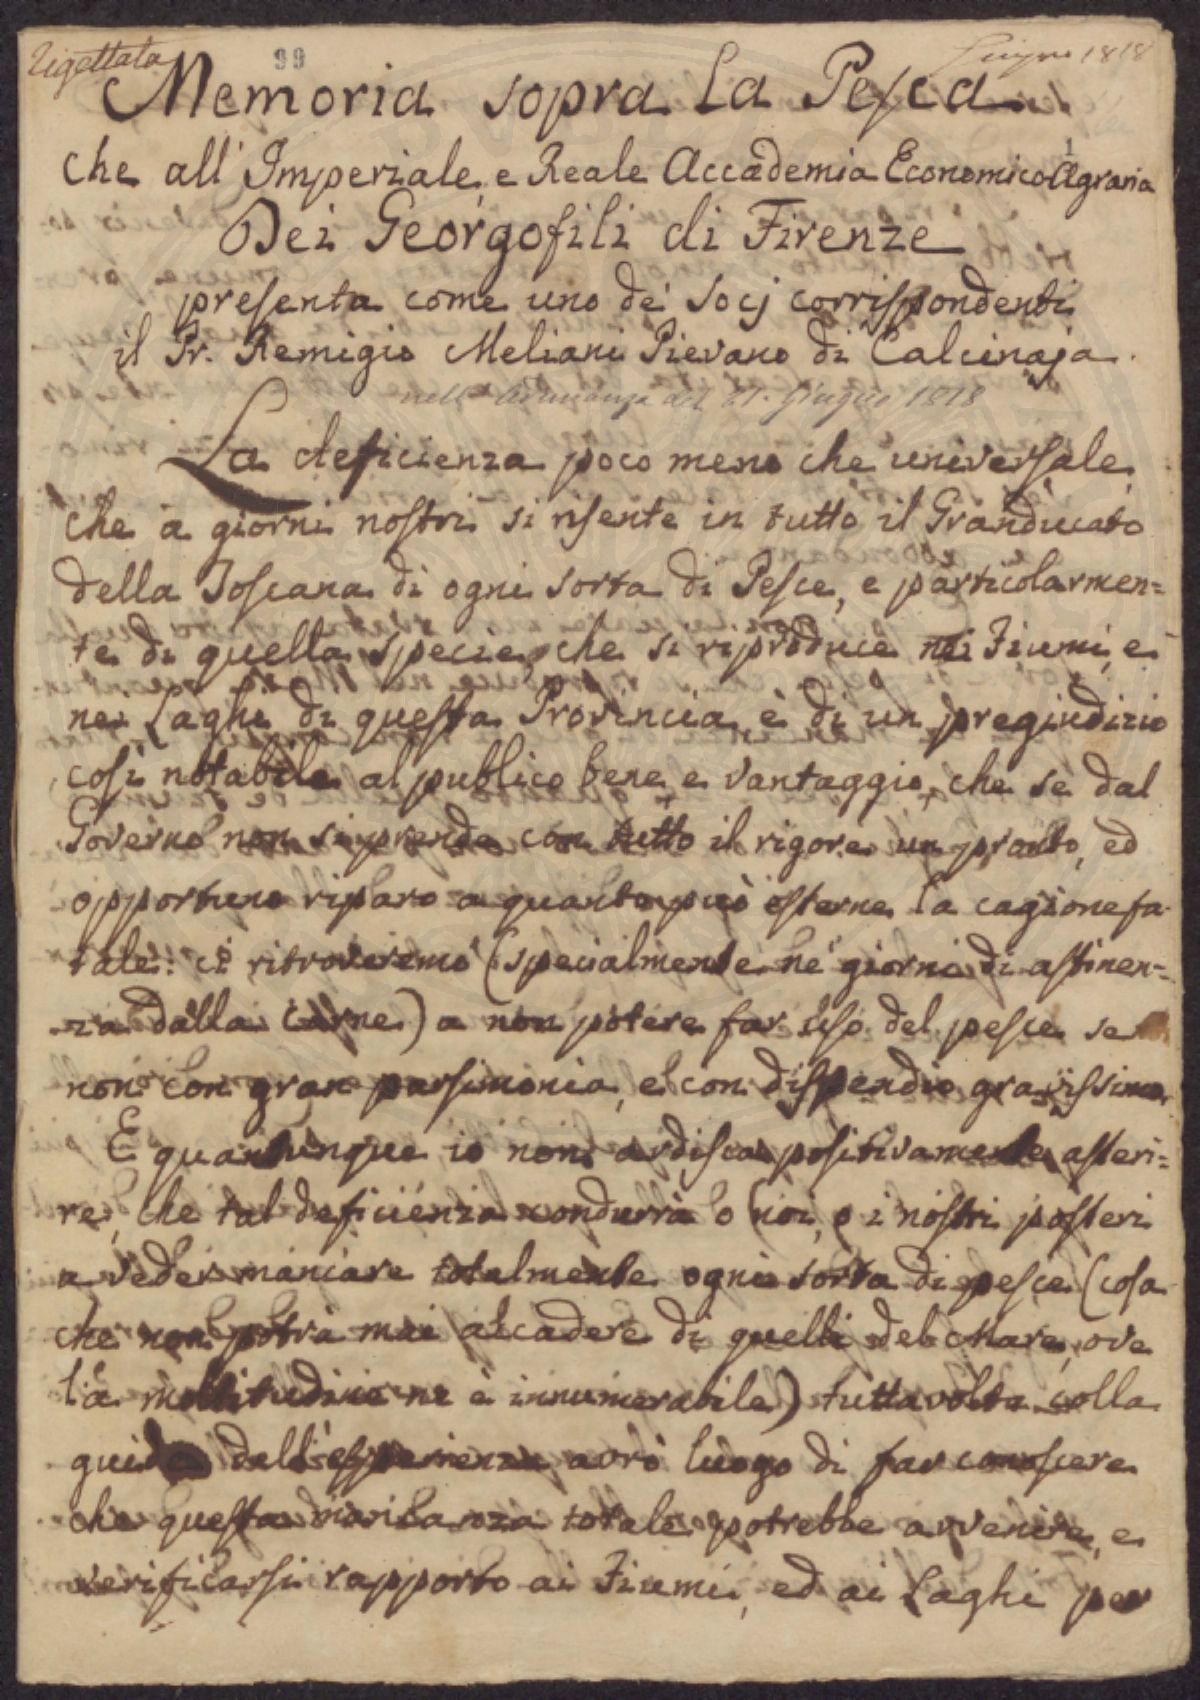 Rigettata
99
Giugno 1818
Memoria sopra la Pesca
che all' Imperiale e Reale Accademia Economico Agraria
Dei Georgofili di Firenze
presenta come uno de' Socj corrispondenti
il Pr. Remigio Meliani Pievano di Calcinaja.
nell' Adunanza del 21. Giugno 1818
La deficienza poco meno che universale,
che a giorni nostri si risente in tutto il Granducato
della Toscana di ogni sorta di Pesce, e particolarmen=
te di quella specie, che si riproduce nei Fiumi, e
nei Laghi di questa Provincia è di un pregiudizio
così notabile al publico bene e vantaggio, che se dal
Governo non si prende con tutto il rigore un pronto, ed
opportuno riparo a quanto può esserne la cagione fa-
tale: ci ritroveremo (specialmente ne' giorni di astinen=
za dalla carne) a non potere far uso del pesce se
non con gran parsimonia, e con dispendio gravissimo.
E quantunque io non ardisca positivamente asseri=
re, che tal deficienza condurrà o noi, o i nostri posteri
a veder mancare totalmente ogni sorta di pesce (cosa
che non potrà mai accadere di quelli del Mare, ove
la moltitudine ne è innumerabile) tuttavolta colla
guida dell'esperienza avrò luogo di far conoscere
che questa mancanza totale potrebbe avvenire, e
verificarsi rapporto ai Fiumi, ed ai Laghi per